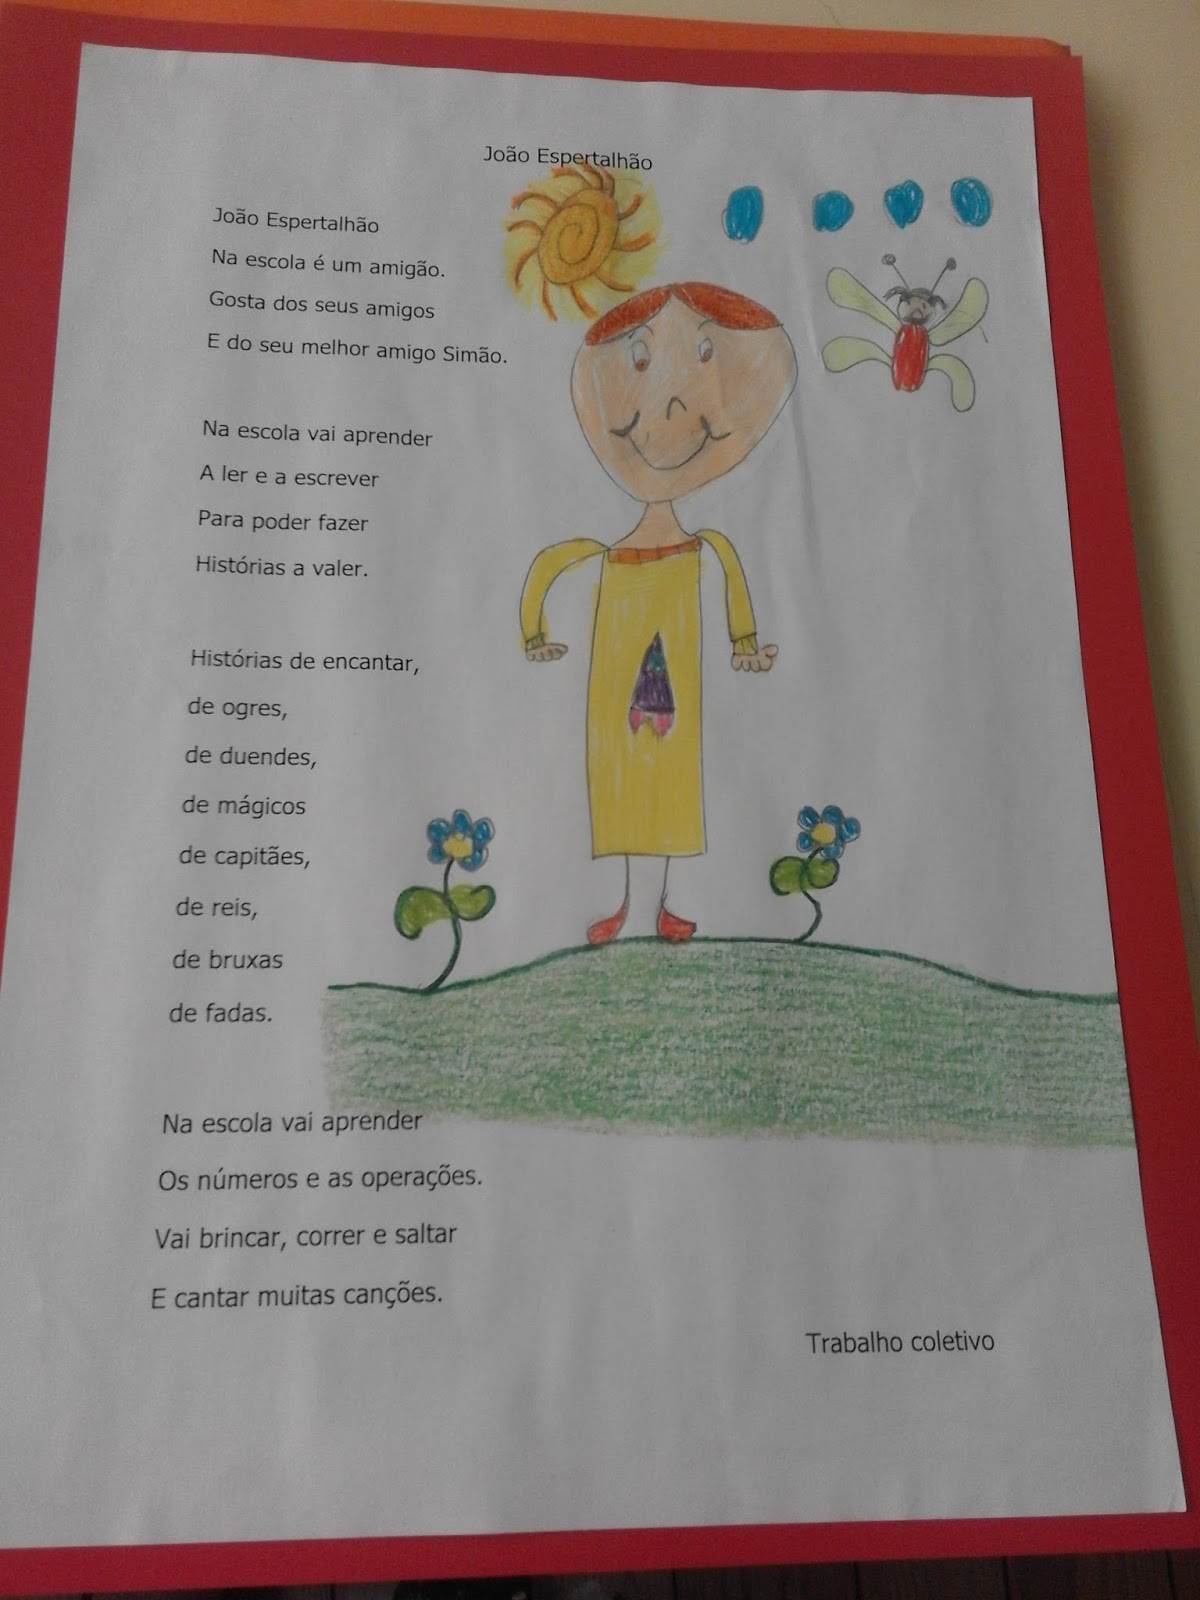 João Espertalhão
João Espertalhão
Na escola é um amigão.
Gosta dos seus amigos
E do seu melhor amigo Simão.
Na escola vai aprender
A ler e a escrever
Para poder fazer
Histórias a valer.
Histórias de encantar,
de ogres,
de duendes,
de mágicos
de capitães,
de reis,
de bruxas
de fadas.
Na escola vai aprender
Os números e as operações.
Vai brincar, correr e saltar
E cantar muitas canções.
Trabalho coletivo